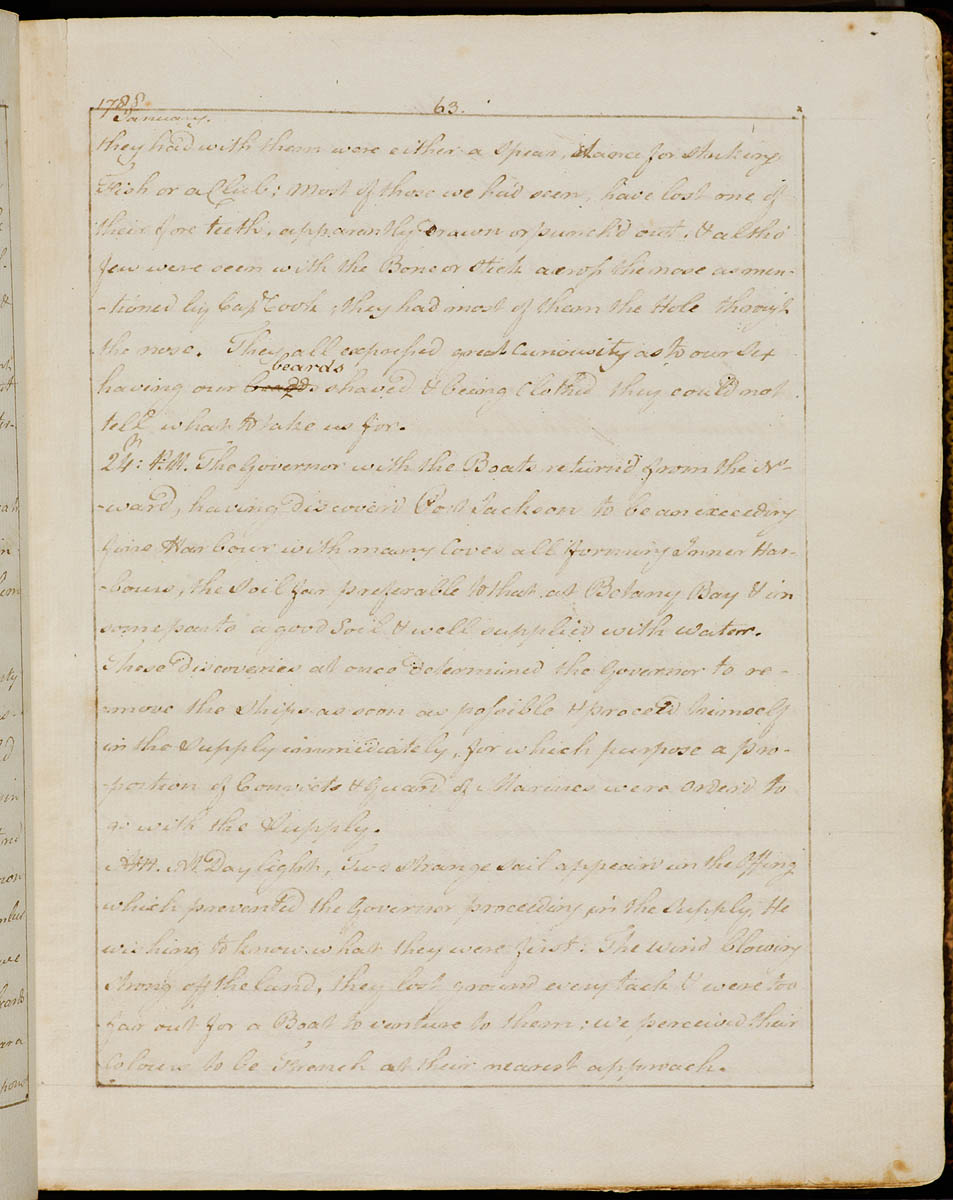 1788 63.
January.
they had with them were either a Spear, Lance for striking
Fish or a Club; most of those we had seen, have lost one of
their fore teeth, apparantly drawn or punch'd out, & altho'
few were seen with the Bone or Stick across the nose as men-
-tioned by Capt Cook, they had most of them the Hole through
the nose. They all expressed great Curiousity as to our Sex
beards
having our shaved & being Clothed they could not
tell what to take us for.
24th: P.M. The Governor with the Boats return'd from the No-
-ward, having discover'd Port Jackson to be an exceeding
fine Harbour with many Coves all forming Inner Har-
-bours, the Soil far preferable to that at Botany Bay & in
some parts a good Soil & well supplied with water.
These discoveries at once determined the Governor to re-
-move the Ships as soon as possible & proceed himself
in the Supply immediately, for which purpose a pro-
-portion of Convicts & Guard of Marines were order'd to
go with the Supply.
AM. At Day light, Two strange Sail appear'd in the Offing
which prevented the Governor proceeding in the Supply, He
wishing to know what they were first: The wind blowing
strong off the land, they lost ground every tack & were too
far out for a Boat to venture to them; we perceived their
Colours to be French at their nearest approach.